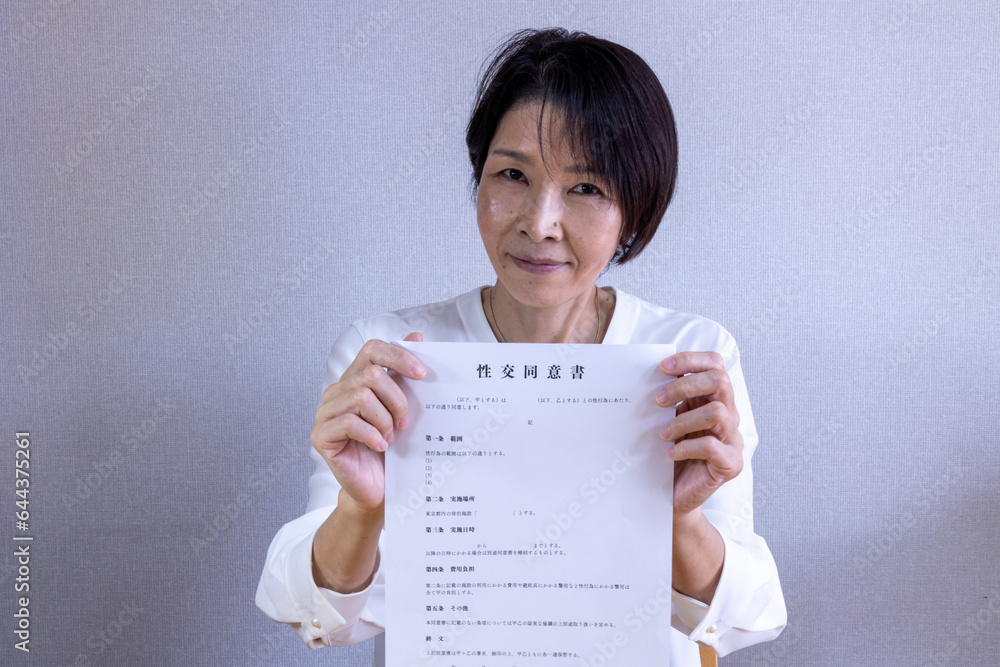 性交同意書
(以下、甲とする)は (以下、乙とする)との性行為にあたり、
以下の通り同意します。
記
第一条 範囲
性行為の範囲は以下の通りとする。
(1)
(2)
(3)
(4)
第二条 実施場所
東京都内の宿泊施設「 」とする。
第三条 実施日時
から までとする。
以降の日時にかかる場合は別途同意書を締結するものとする。
第四条 費用負担
第二条に記載の施設の利用にかかる費用や避妊具にかかる費用など性行為にかかる費用は
全て甲の負担とする。
第五条 その他
本同意書に記載のない条項については甲乙の誠実な協議の上別途取り扱いを定める。
終 文
上記同意書は甲と乙の署名、捺印の上、甲乙ともに各一通保管する。
Adobe Stock | #644375261